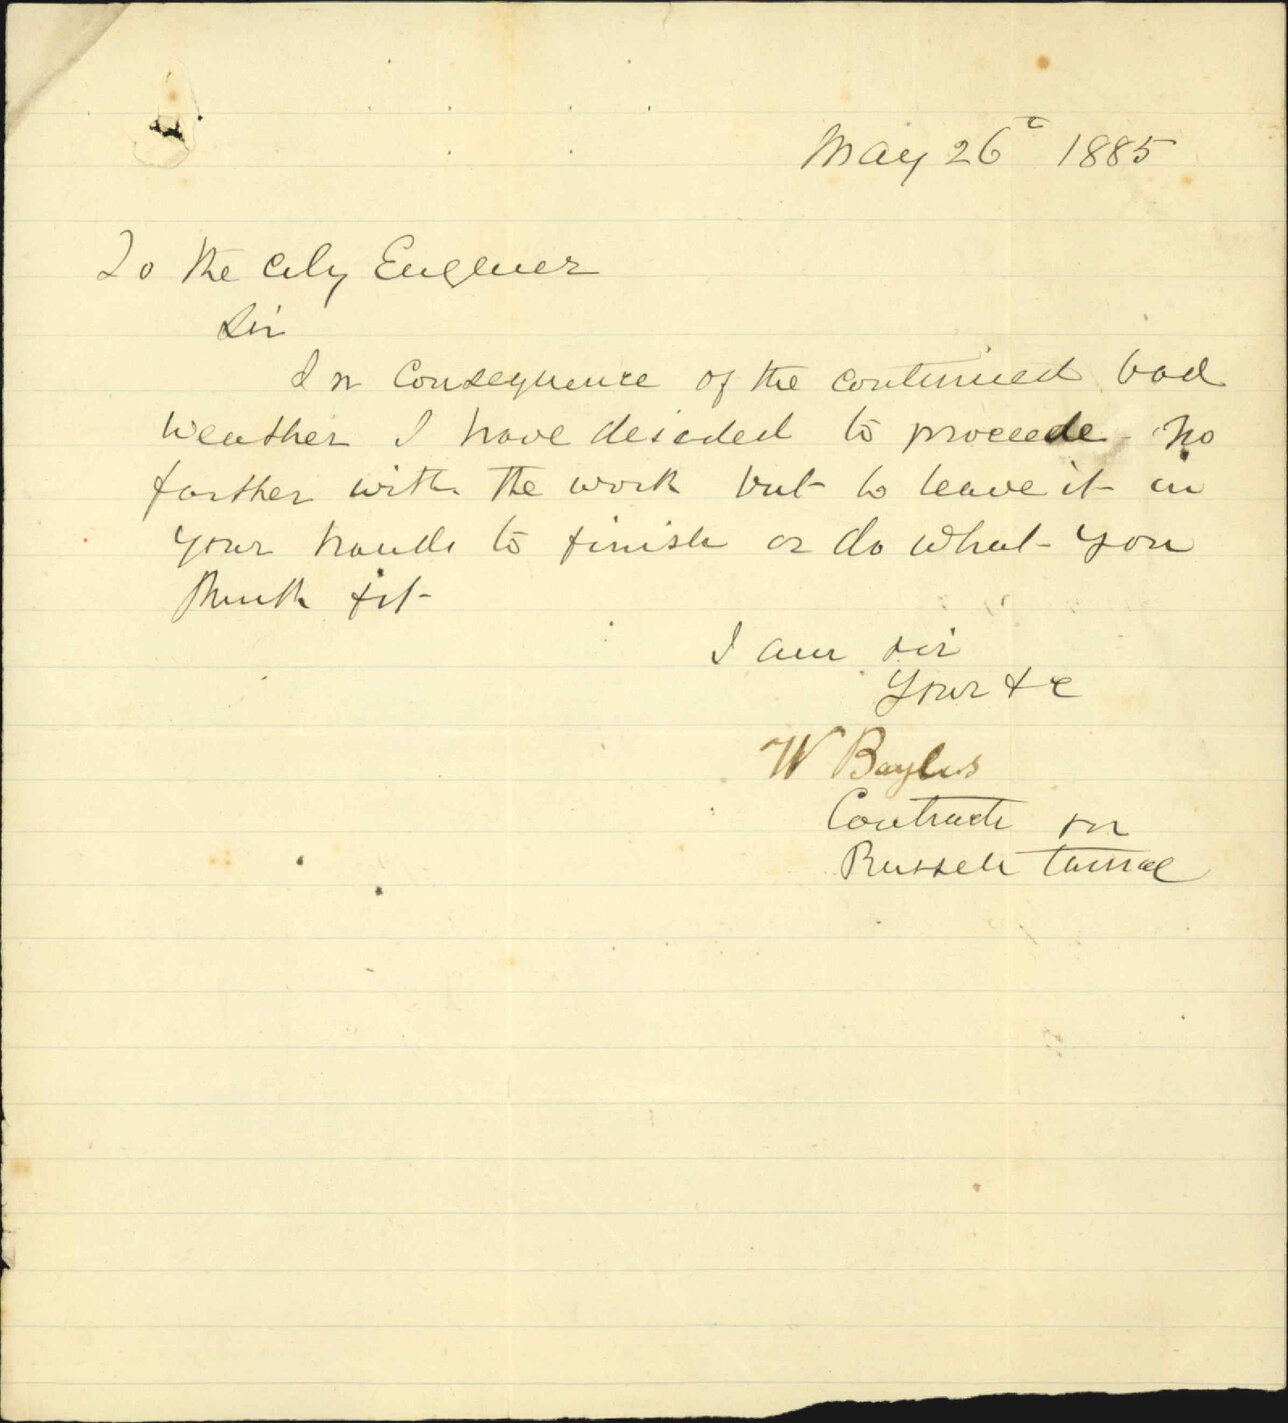 May 26th 1885
To the City Engener
Sir
In Consequence of the continued bad
weather I have desided to proceede no
farther with the work but to leave it in
your hands to finish or do what you
think fit
I am sir
Your &c
W Bayliss
Contractr on
Russell tunnel